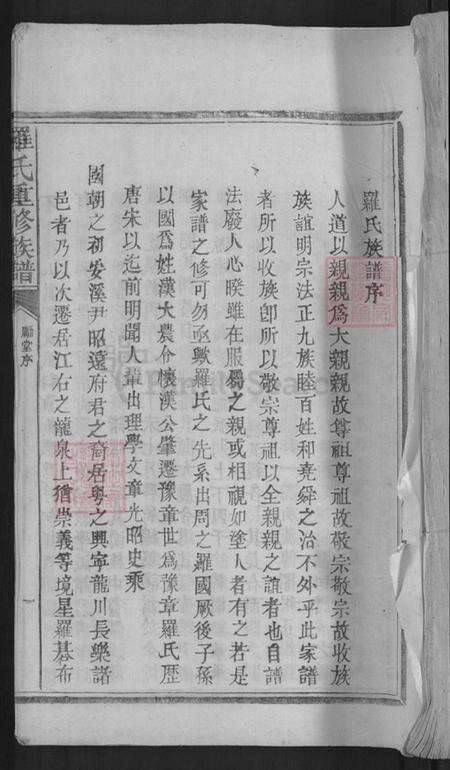 羅氏族譜序
人道以親親爲大親親故尊祖尊祖故敬宗敬宗故收族
族誼明宗法正九族睦百姓和堯舜之治不外乎此家譜
者所以收族卽所以敬宗尊祖以全親親之誼者也自譜
法廢人心暌雖在服屬之親或相視如塗人者有之若是
家譜之修可勿亟歟羅氏之先系出周之羅國厥後子孫
以國爲姓漢大農令懷漢公肇遷豫章世爲豫章羅氏歷
唐宋以迄前明聞人輩出理學文章光昭史乘
國朝之初安溪尹昭遠府君之裔居粵之興寧龍川長樂諸
邑者乃以次遷居江右之龍泉上猶崇義等境星羅棊布
羅氏重修族譜
廟堂序
一